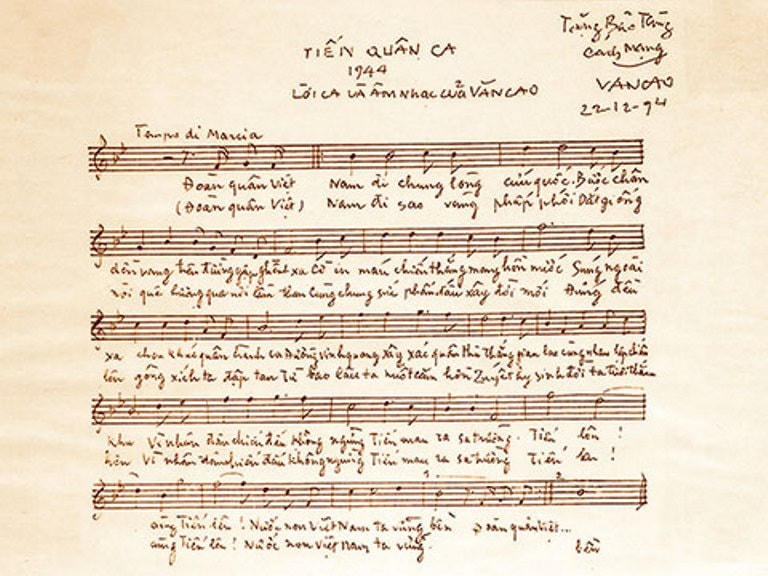 TIẾN QUÂN CA
1944
LỜI CA VÀ ÂM NHẠC CỦA VĂN CAO
Tặng Bảo Tàng
Cách Mạng
VANCAO
22-12-94
Tempo di Marcia
Đoàn quân Việt Nam đi chung lòng cứu quốc. Bước chân
(Đoàn quân Việt) Nam đi sao vàng phấp phới Dắt giống
dồn vang trên đường gập ghềnh xa Cờ in máu chiến thắng mang hồn nước Súng ngoài
nòi quê hương qua nơi lầm than Cùng chung sức phấn đấu xây đời mới Đứng đều
xa chen khúc quân hành ca Đường vinh quang xây xác quân thù Thắng gian lao cùng nhau lập chiến
lên gông xích ta đập tan Từ bao lâu ta nuốt căm hờn Quyết hy sinh đời ta tươi thắm
khu Vì nhân dân chiến đấu không ngừng Tiến mau ra sa trường. Tiến lên!
hơn Vì nhân dân chiến đấu không ngừng Tiến mau ra sa trường Tiến lên!
cùng Tiến lên! Nước non Việt Nam ta vững bền Đoàn quân Việt...
cùng Tiến lên! Nước non Việt Nam ta vững. bền